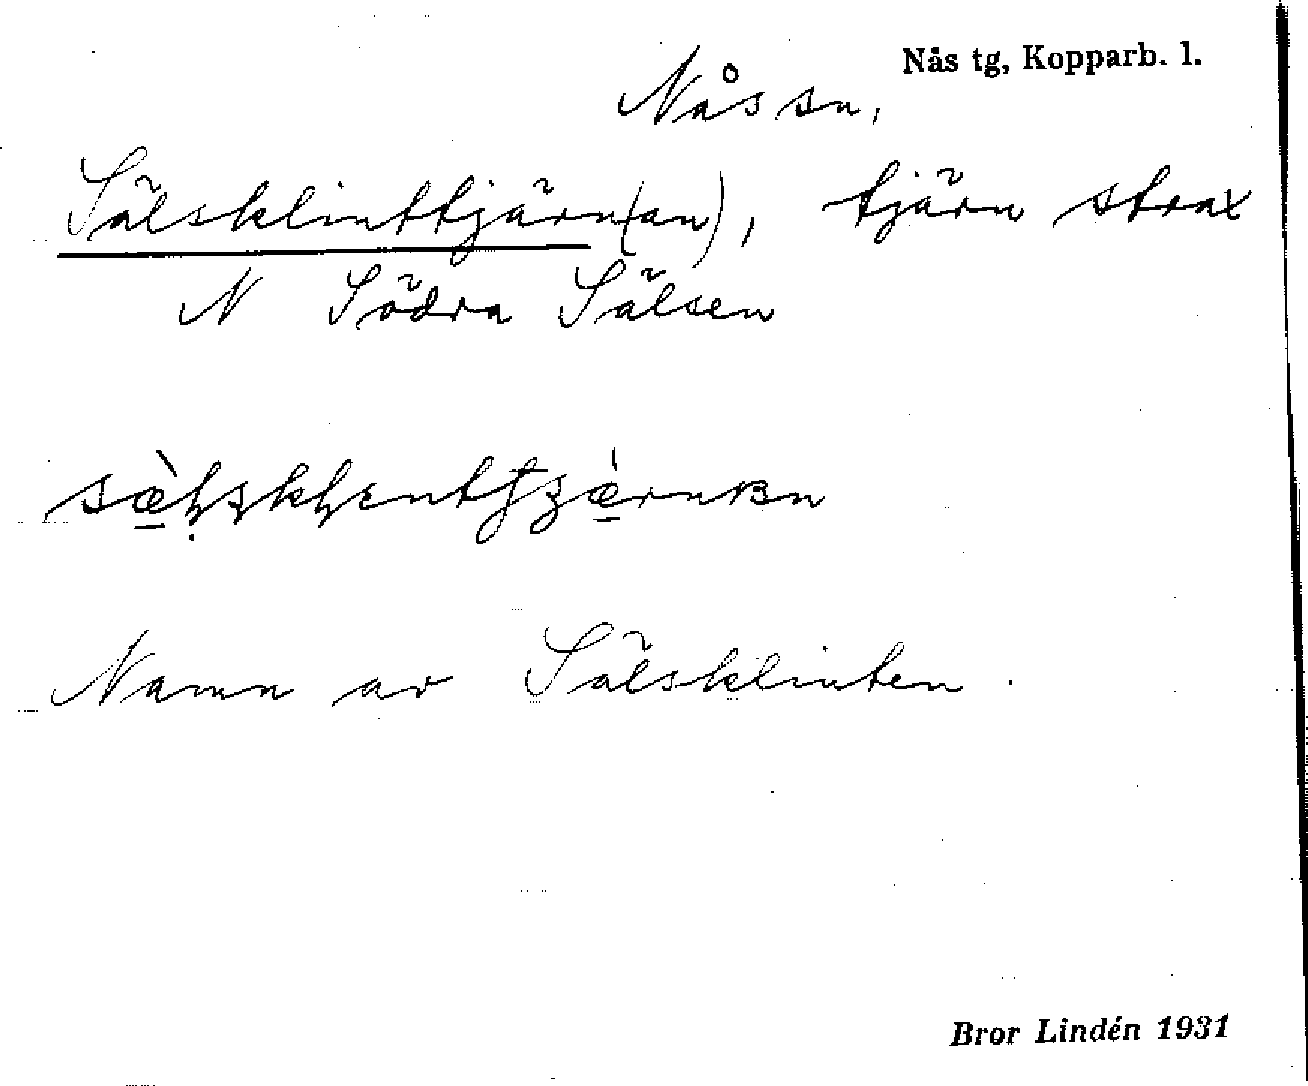 Nås tg, Kopparb. l.
Nås sn,
Sälsklinttjärn(an), tjärn strax
N Södra Sälsen
Namn av Sälsklinten.
Bror Lindén 1931